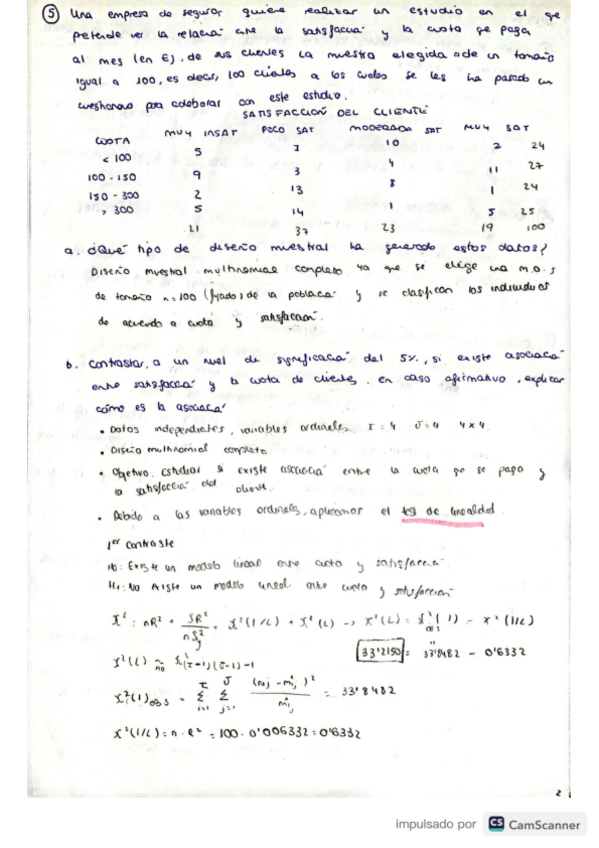 5 Una empresa de seguros quiere realizar un estudio en el qe
pretende ver la relación entre la satisfacción y la cuota qe pagan
al mes (en €), de sus clientes. La muestra elegida es de un tamaño
igual a 100, es decir, 100 clientes a los cuales se les ha pasado un
cuestionario para colaborar con este estudio.
SATISFACCIÓN DEL CLIENTE
CUOTA MUY INSAT POCO SAT MODERADA SAT MUY SAT
< 100 5 7 10 2 24
100 - 150 9 3 4 11 27
150 - 300 2 13 8 1 24
> 300 5 14 1 5 25
21 37 23 19 100
a. ¿Qué tipo de diseño muestral ha generado estos datos?
Diseño muestral multinomial completo ya que se elige una m.a.s
de tamaño n=100 (fijado) de la población y se clasifican los individuos
de acuerdo a cuota y satisfacción.
b. Contrastar, a un nivel de significación del 5%, si existe asociación
entre satisfacción y la cuota de clientes. en caso afirmativo, explicar
cómo es la asociación
• Datos independientes, variables ordinales I = 4 J = 4 4x4
• Diseño multinomial completo
• Objetivo: Estudiar si existe asociación entre la cuota qe se paga y
la satisfacción del cliente.
• Debido a las variables ordinales, aplicamos el test de linealidad.
1er contraste
H0: Existe un modelo lineal entre cuota y satisfacción.
H1: No existe un modelo lineal entre cuota y satisfacción
X² = nR² + SR²/nSy² = X²(1/L) + X²(L) → X²(L) = X²(1) - X²(1/L)
33'2150 = 33'8482 - 0'6332
X²(L) ~H0 X²(I-1)(J-1)-1
X²(1)obs = Σ Σ (nij - m̂ij)² / m̂ij = 33'8482
X²(1/L) = n · R² = 100 · 0'006332 = 0'6332
2
impulsado por CS CamScanner